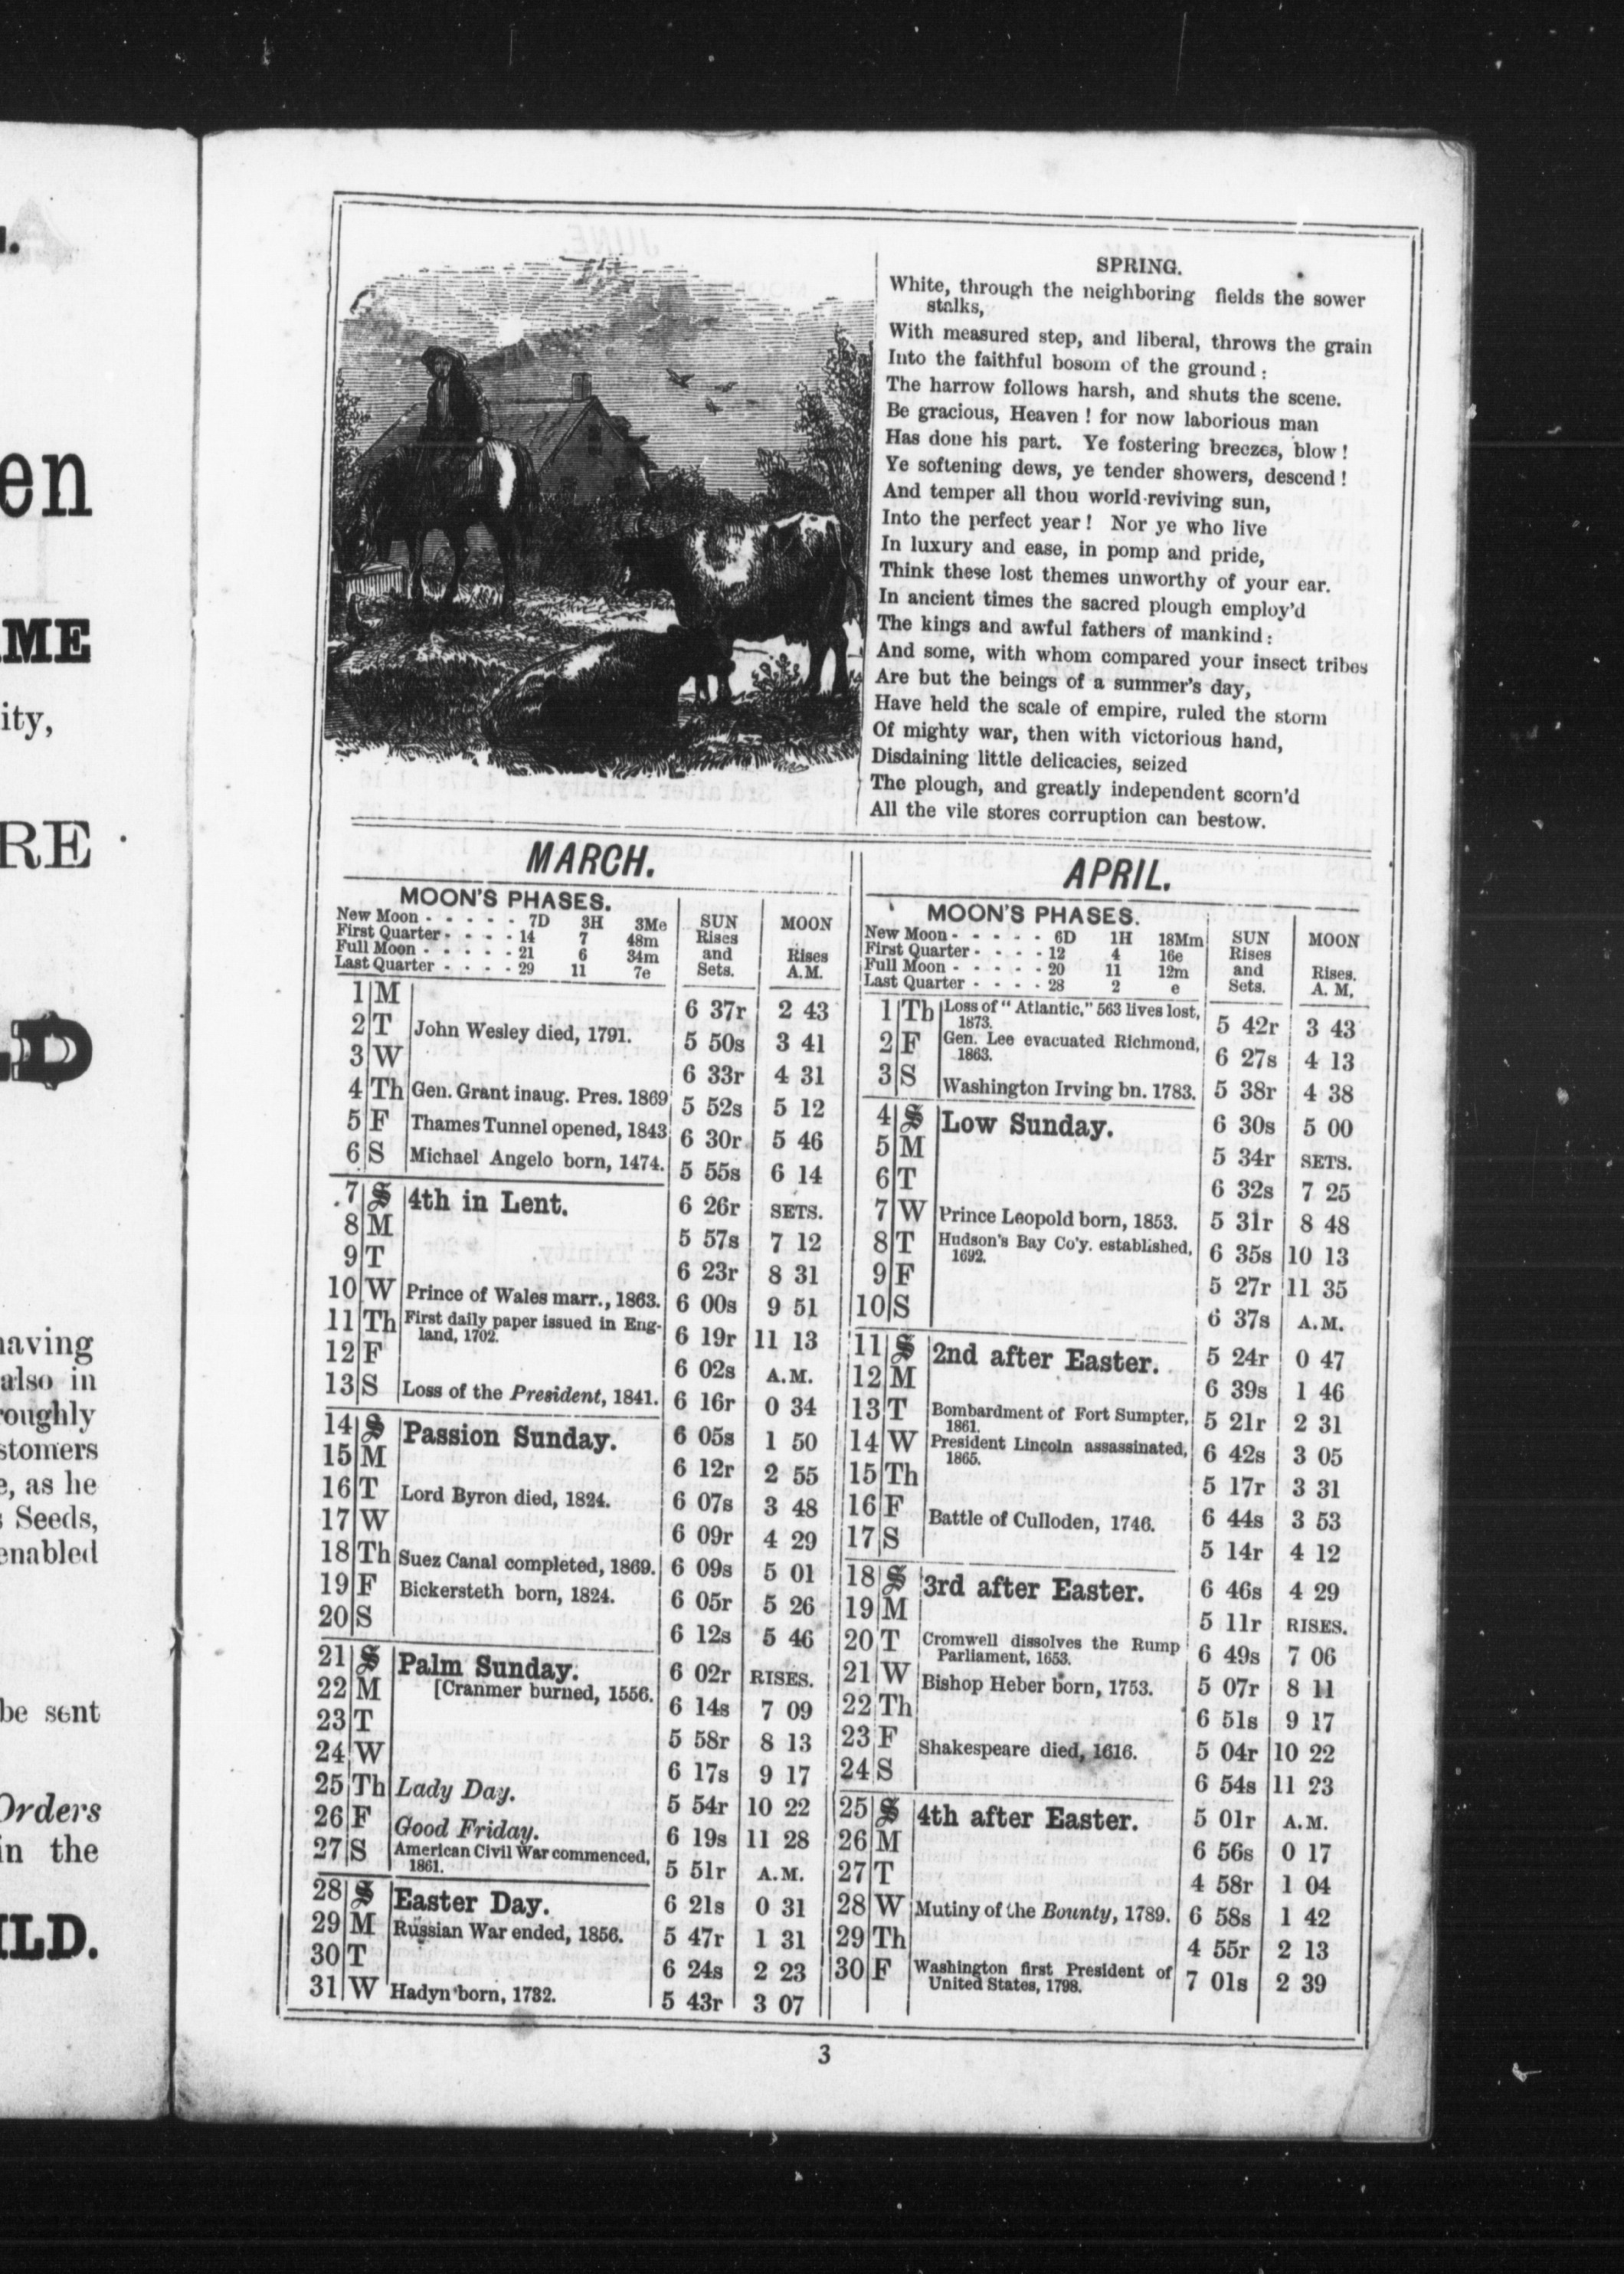 en
ME
ity,
RE
LD
having
also in
roughly
stomers
e, as he
s Seeds,
enabled
be sent
Orders
in the
ILD.
SPRING.
White, through the neighboring fields the sower
stalks,
With measured step, and liberal, throws the grain
Into the faithful bosom of the ground :
The harrow follows harsh, and shuts the scene.
Be gracious, Heaven ! for now laborious man
Has done his part. Ye fostering breezes, blow !
Ye softening dews, ye tender showers, descend !
And temper all thou world-reviving sun,
Into the perfect year ! Nor ye who live
In luxury and ease, in pomp and pride,
Think these lost themes unworthy of your ear.
In ancient times the sacred plough employ'd
The kings and awful fathers of mankind :
And some, with whom compared your insect tribes
Are but the beings of a summer's day,
Have held the scale of empire, ruled the storm
Of mighty war, then with victorious hand,
Disdaining little delicacies, seized
The plough, and greatly independent scorn'd
All the vile stores corruption can bestow.
MARCH.
MOON'S PHASES.
New Moon - - - - - 7D 3H 3Me
First Quarter - - - - 14 7 48m
Full Moon - - - - - 21 6 34m
Last Quarter - - - - 29 11 7e
SUN
Rises
and
Sets.
MOON
Rises
A.M.
1 M 6 37r 2 43
2 T John Wesley died, 1791. 5 50s 3 41
3 W 6 33r 4 31
4 Th Gen. Grant inaug. Pres. 1869 5 52s 5 12
5 F Thames Tunnel opened, 1843 6 30r 5 46
6 S Michael Angelo born, 1474. 5 55s 6 14
7 S 4th in Lent. 6 26r SETS.
8 M 5 57s 7 12
9 T 6 23r 8 31
10 W Prince of Wales marr., 1863. 6 00s 9 51
11 Th First daily paper issued in Eng- 6 19r 11 13
land, 1702.
12 F 6 02s A.M.
13 S Loss of the President, 1841. 6 16r 0 34
14 S Passion Sunday. 6 05s 1 50
15 M 6 12r 2 55
16 T Lord Byron died, 1824. 6 07s 3 48
17 W 6 09r 4 29
18 Th Suez Canal completed, 1869. 6 09s 5 01
19 F Bickersteth born, 1824. 6 05r 5 26
20 S 6 12s 5 46
21 S Palm Sunday. 6 02r RISES.
22 M [Cranmer burned, 1556. 6 14s 7 09
23 T 5 58r 8 13
24 W 6 17s 9 17
25 Th Lady Day. 5 54r 10 22
26 F Good Friday. 6 19s 11 28
27 S American Civil War commenced, 5 51r A.M.
1861.
28 S Easter Day. 6 21s 0 31
29 M Russian War ended, 1856. 5 47r 1 31
30 T 6 24s 2 23
31 W Hadyn born, 1732. 5 43r 3 07
APRIL.
MOON'S PHASES.
New Moon - - - - - 6D 1H 18Mm
First Quarter - - - - 12 4 16e
Full Moon - - - - - 20 11 12m
Last Quarter - - - - 28 2 e
SUN
Rises
and
Sets.
MOON
Rises.
A. M.
1 Th Loss of "Atlantic," 563 lives lost, 5 42r 3 43
1873.
2 F Gen. Lee evacuated Richmond, 6 27s 4 13
1863.
3 S Washington Irving bn. 1783. 5 38r 4 38
4 S Low Sunday. 6 30s 5 00
5 M 5 34r SETS.
6 T 6 32s 7 25
7 W Prince Leopold born, 1853. 5 31r 8 48
8 T Hudson's Bay Co'y. established, 6 35s 10 13
1692.
9 F 5 27r 11 35
10 S 6 37s A.M.
11 S 2nd after Easter. 5 24r 0 47
12 M 6 39s 1 46
13 T Bombardment of Fort Sumpter, 5 21r 2 31
1861.
14 W President Lincoln assassinated, 6 42s 3 05
1865.
15 Th 5 17r 3 31
16 F Battle of Culloden, 1746. 6 44s 3 53
17 S 5 14r 4 12
18 S 3rd after Easter. 6 46s 4 29
19 M 5 11r RISES.
20 T Cromwell dissolves the Rump 6 49s 7 06
Parliament, 1653.
21 W Bishop Heber born, 1753. 5 07r 8 11
22 Th 6 51s 9 17
23 F Shakespeare died, 1616. 5 04r 10 22
24 S 6 54s 11 23
25 S 4th after Easter. 5 01r A.M.
26 M 6 56s 0 17
27 T 4 58r 1 04
28 W Mutiny of the Bounty, 1789. 6 58s 1 42
29 Th 4 55r 2 13
30 F Washington first President of 7 01s 2 39
United States, 1798.
3